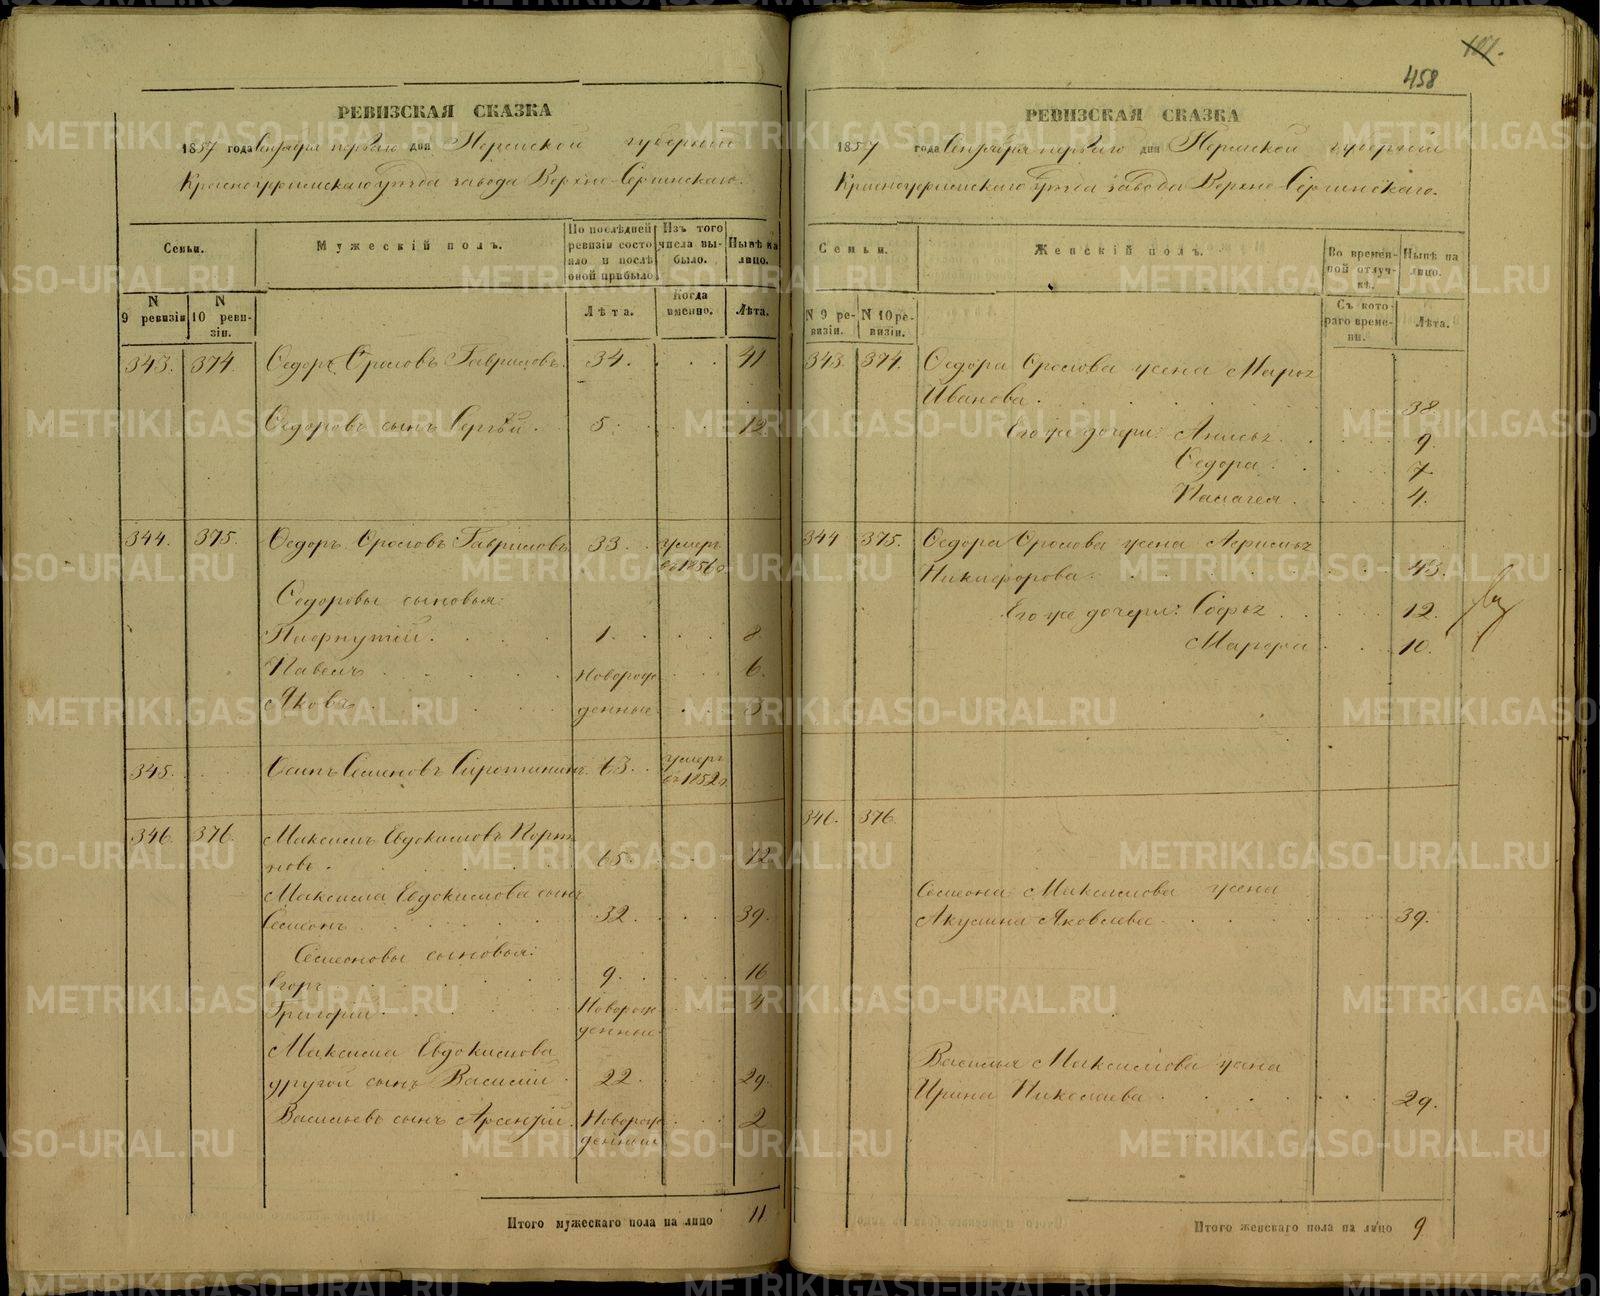 458
РЕВИЗСКАЯ СКАЗКА
1857 года Сентября первого дня Пермской губернии
Красноуфимскаго уѣзда завода Верхне-Сергинскаго.
Семьи.
Мужескій полъ.
По послѣдней ревизіи состояло и послѣ оной прибыло
Изъ того числа выбыло.
Нынѣ на лицо.
N 9 ревизіи
N 10 ревизіи.
Лѣта.
Когда именно.
Лѣта.
343. 374. Федоръ Фроловъ Гавриловъ. 34. 41
Федоровъ сынъ Сергѣй. 5. 12
344. 375. Федоръ Фроловъ Гавриловъ 33. умеръ
въ 1856 г.
Федоровы сыновья:
Пафнутій. 1. 8
Павелъ Новорож 6.
Яковъ денные 3
345. Осипъ Семеновъ Сиротининъ. 63. умеръ
въ 1852 г.
346. 376. Максимъ Евдокимовъ Порт
новъ. 65. 72
Максима Евдокимова сынъ
Семенъ 32. 39.
Семеновы сыновья:
Егоръ 9. 16
Григорій Новорож 4
денные
Максима Евдокимова
другой сынъ Василій. 22. 29.
Васильевъ сынъ Арсентій. Новорож 2
денный
Итого мужескаго пола на лицо 11
РЕВИЗСКАЯ СКАЗКА
1857 года Сентября перваго дня Пермской губерніи
Красноуфимскаго уѣзда завода Верхне-Сергинскаго.
Семьи.
Женскій полъ.
Во временной отлучкѣ.
Нынѣ на лицо.
N 9 ревизіи.
N 10 ревизіи.
Съ котораго времени.
Лѣта.
343. 374. Федора Фролова жена Марья
Иванова. 38
Его же дочери: Анисья 9.
Федора. 7.
Палагея. 4.
344 375. Федора Фролова жена
Никифорова. 43.
Его же дочери: Софья 12.
Марфа 10.
346. 376.
Семена Максимова жена
Акулина Яковлева 39.
Василья Максимова жена
Ирина Николаева 29.
Итого женскаго пола на лицо 9
METRIKI.GASO-URAL.RU